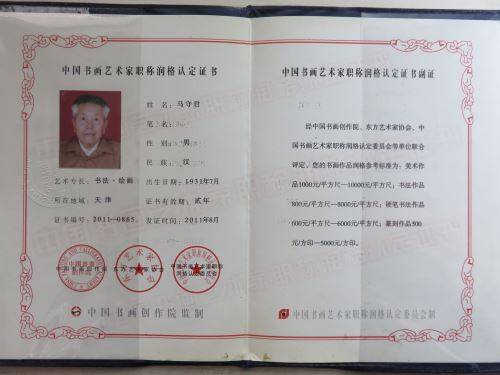 中国书画艺术家职称润格认定证书
姓名 马守君
笔名
性别 男
民族 汉
艺术专长: 书法·绘画 出生日期: 1931年7月
所在地域: 天津 证书有效期: 贰年
证书编号: 2011-0865 发证时间: 2011年8月
中国书画创作院 东方艺术家协会 中国书画艺术家职称润格认定委员会
中国书画创作院监制
中国书画艺术家职称润格认定证书副证
经中国书画创作院、东方艺术家协会、中
国书画艺术家职称润格认定委员会等单位联合
评定,您的书画作品润格参考标准为:美术作
品1000元/平方尺—10000元/平方尺;书法作品
800元/平方尺—8000元/平方尺;硬笔书法作品
600元/平方尺—6000元/平方尺;篆刻作品500
元/方印—5000元/方印。
中国书画艺术家职称润格认定委员会制